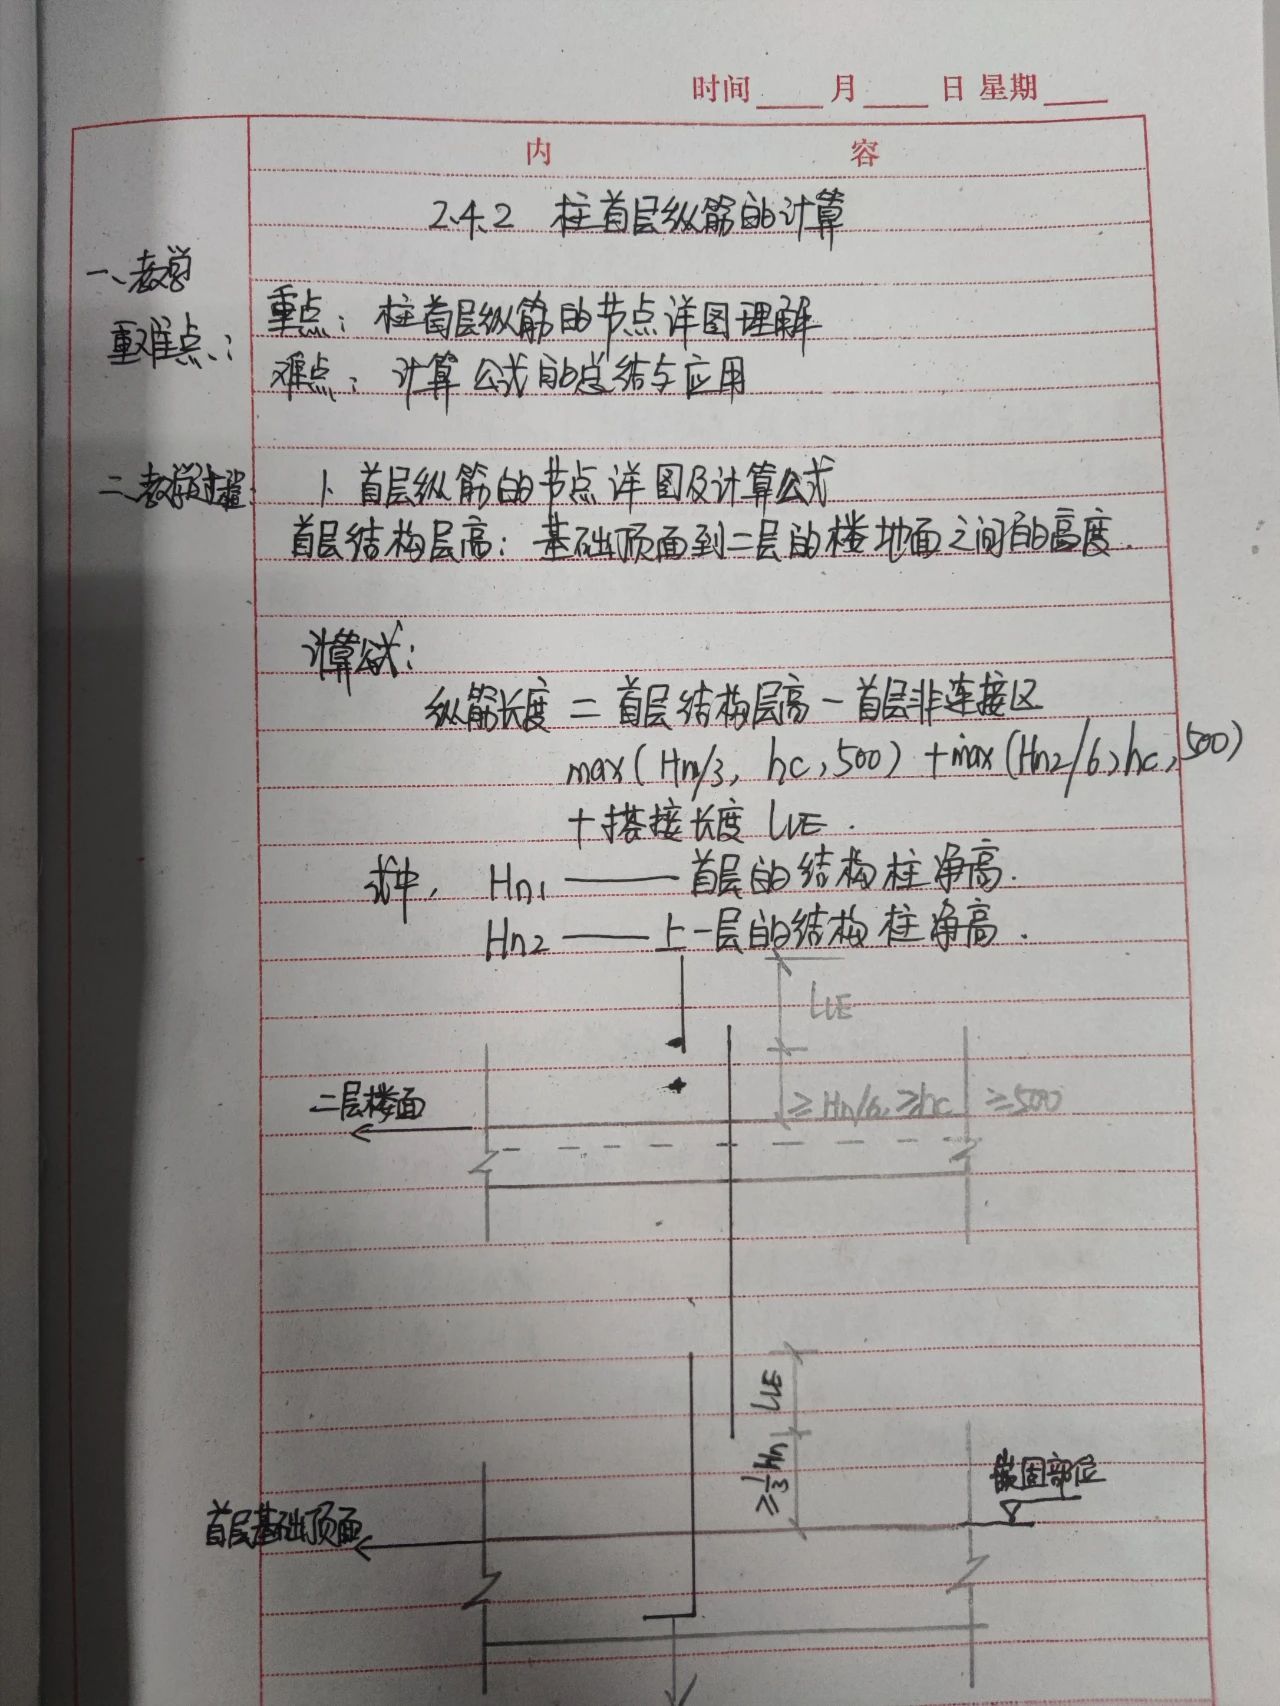 时间____月____日 星期____
内 容
2.4.2 柱首层纵筋的计算
一、教学
重难点：
重点：柱首层纵筋的节点详图理解
难点：计算公式的总结与应用
二、教学过程：
1、首层纵筋的节点详图及计算公式
首层结构层高：基础顶面到二层的楼地面之间的高度.
计算公式：
纵筋长度 = 首层结构层高 - 首层非连接区
max(Hn/3, hc, 500) + max(Hn2/6, hc, 500)
+搭接长度 LlE.
式中, Hn1 —— 首层的结构柱净高.
Hn2 —— 上一层的结构柱净高.
LlE
二层楼面
≥Hn/6, ≥hc ≥500
LlE
≥1/3Hn
嵌固部位
首层基础顶面